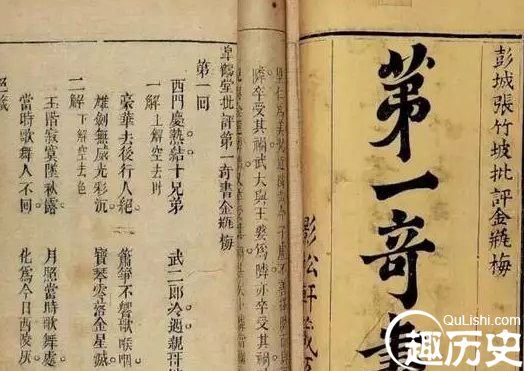 彭城張竹坡批評金瓶梅
第一奇書
隣卒受其禍武大與王婆為隣亦卒受其禍
皐鶴堂批評第一奇書金瓶梅
第一回
西門慶熱結十兄弟 武二郎冷遇親哥
一解 上解空去財
豪華去後行人絕 簫箏不響歌喉咽
雄劍無威光彩沉 寶琴零落金星滅
二解 下解空去色
玉階寂寞墜秋露 月照當時歌舞處
當時歌舞人不同 化為今日西陵灰
QuLishi.com
趣历史